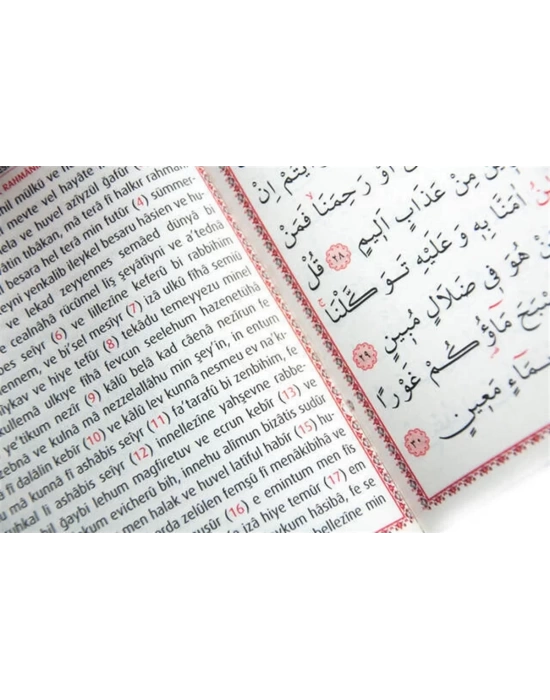 RAHMAN
mülkü ve
mevte vel hayâte
ve huvel azîyzül gafûr
tıbâkan, mâ terâ fî halkır rahmân
besara hel terâ min futûr (4) sümmer-
yenkalib ileykel besaru hâsien ve hu-
ve lekad zeyyennes semâed dünyâ bi
cealnâhâ rücûmel liş şeyâtîyni ve a'tednâ
seîyr (6) ve lillezîne keferû bi rabbihim
ve bi'sel mesîyr (7) izâ ulkû fîhâ semiû
ve hiye tefûr (8) tekâdu temeyyezu minel
kullemâ ulkıye fîhâ fevcun seelehum hazenetühâ
e'tikum nezîr (9) kâlû belâ kad câenâ nezîrun fe
ve kulnâ mâ nezzelallâhu min şey'in, in entum
fî dalâlin kebîr (10) ve kâlû lev kunnâ nesmeu ev na'k-
mâ kunnâ fî ashâbis seîyr (11) fa'tarafû bi zenbihim, fe
li ashâbis seîyr (12) innellezîne yahşevne rabbe-
bil ğaybi lehum mağfiretuv ve ecrun kebîr (13) ve
evicherû bih, innehu alîmun bizâtis sudûr
men halak ve huvel latîful habîr (15) hu-
zelülen femşû fî menâkibihâ ve
(16) e emintum men fis
izâ hiye temûr (17) em
hâsibâ, fe se
bellezîne min
اَوْ رَحِمَنَا فَمَنْ
مِنْ عَذَابٍ اَلِيمٍ ﴿٢٨﴾ قُلْ
اٰمَنَّا بِهِ وَ عَلَيْهِ تَوَكَّلْنَا
هُوَ فِي ضَلَالٍ مُبِينٍ ﴿٢٩﴾
مَاؤُكُمْ غَوْرًا
مَعِينٍ ﴿٣٠﴾